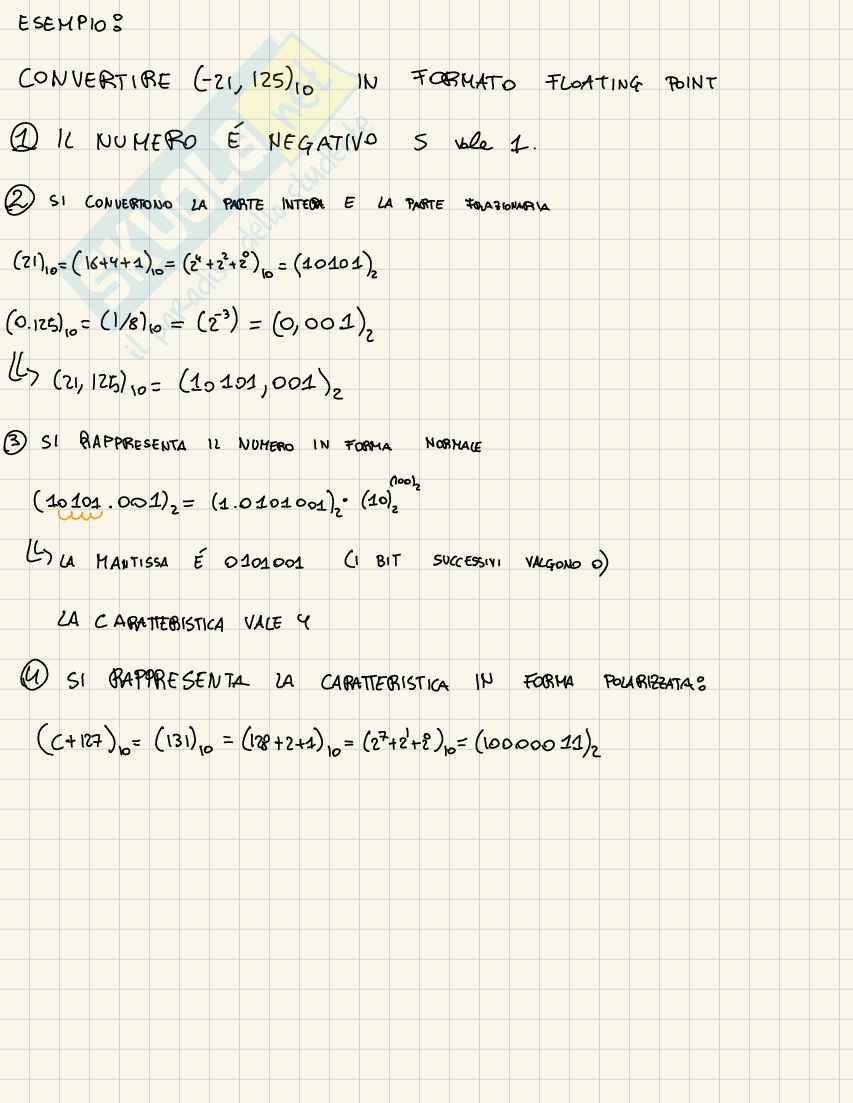 ESEMPIO:
CONVERTIRE (-21,125)₁₀ IN FORMATO FLOATING POINT
① IL NUMERO É NEGATIVO S vale 1.
② SI CONVERTONO LA PARTE INTERA E LA PARTE FRAZIONARIA
(21)₁₀ = (16+4+1)₁₀ = (2⁴+2²+2⁰)₁₀ = (10101)₂
(0.125)₁₀ = (1/8)₁₀ = (2⁻³) = (0,001)₂
↳ (21,125)₁₀ = (10101,001)₂
③ SI RAPPRESENTA IL NUMERO IN FORMA NORMALE
(10101.001)₂ = (1.0101001)₂ · (10)₂^(100)₂
↳ LA MANTISSA É 0101001 (I BIT SUCCESSIVI VALGONO 0)
LA CARATTERISTICA VALE 4
④ SI RAPPRESENTA LA CARATTERISTICA IN FORMA POLARIZZATA:
(C+127)₁₀ = (131)₁₀ = (128+2+1)₁₀ = (2⁷+2¹+2⁰)₁₀ = (10000011)₂
SKUOLA.net
il paradiso dello studente